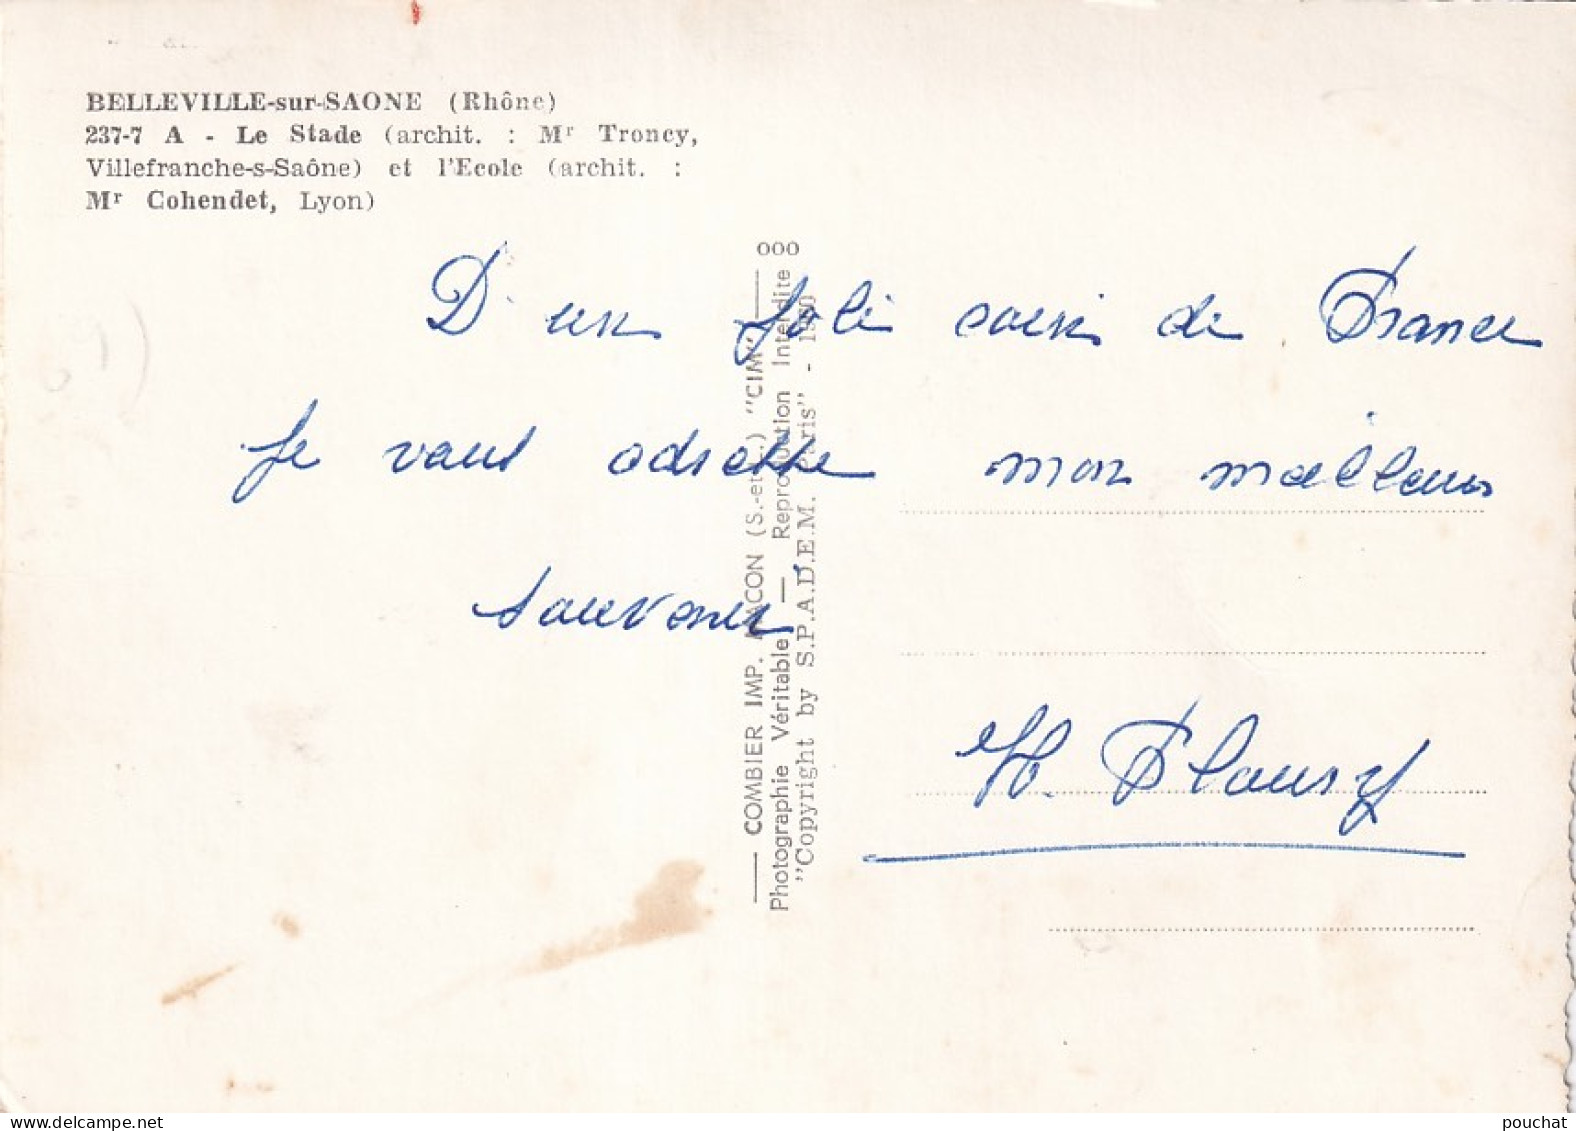 BELLEVILLE-sur-SAONE (Rhône)
237-7 A - Le Stade (archit. : Mr Troncy,
Villefranche-s-Saône) et l'Ecole (archit. :
Mr Cohendet, Lyon)
D'un Joli coin de France
Je vous adresse mon meilleur
souvenir
H. Flaury
ooo
— COMBIER IMP. MACON (S.-et-L.) "CIM" —
Photographie Véritable — Reproduction Interdite
"Copyright by S.P.A.D.E.M. Paris" -
pouchat